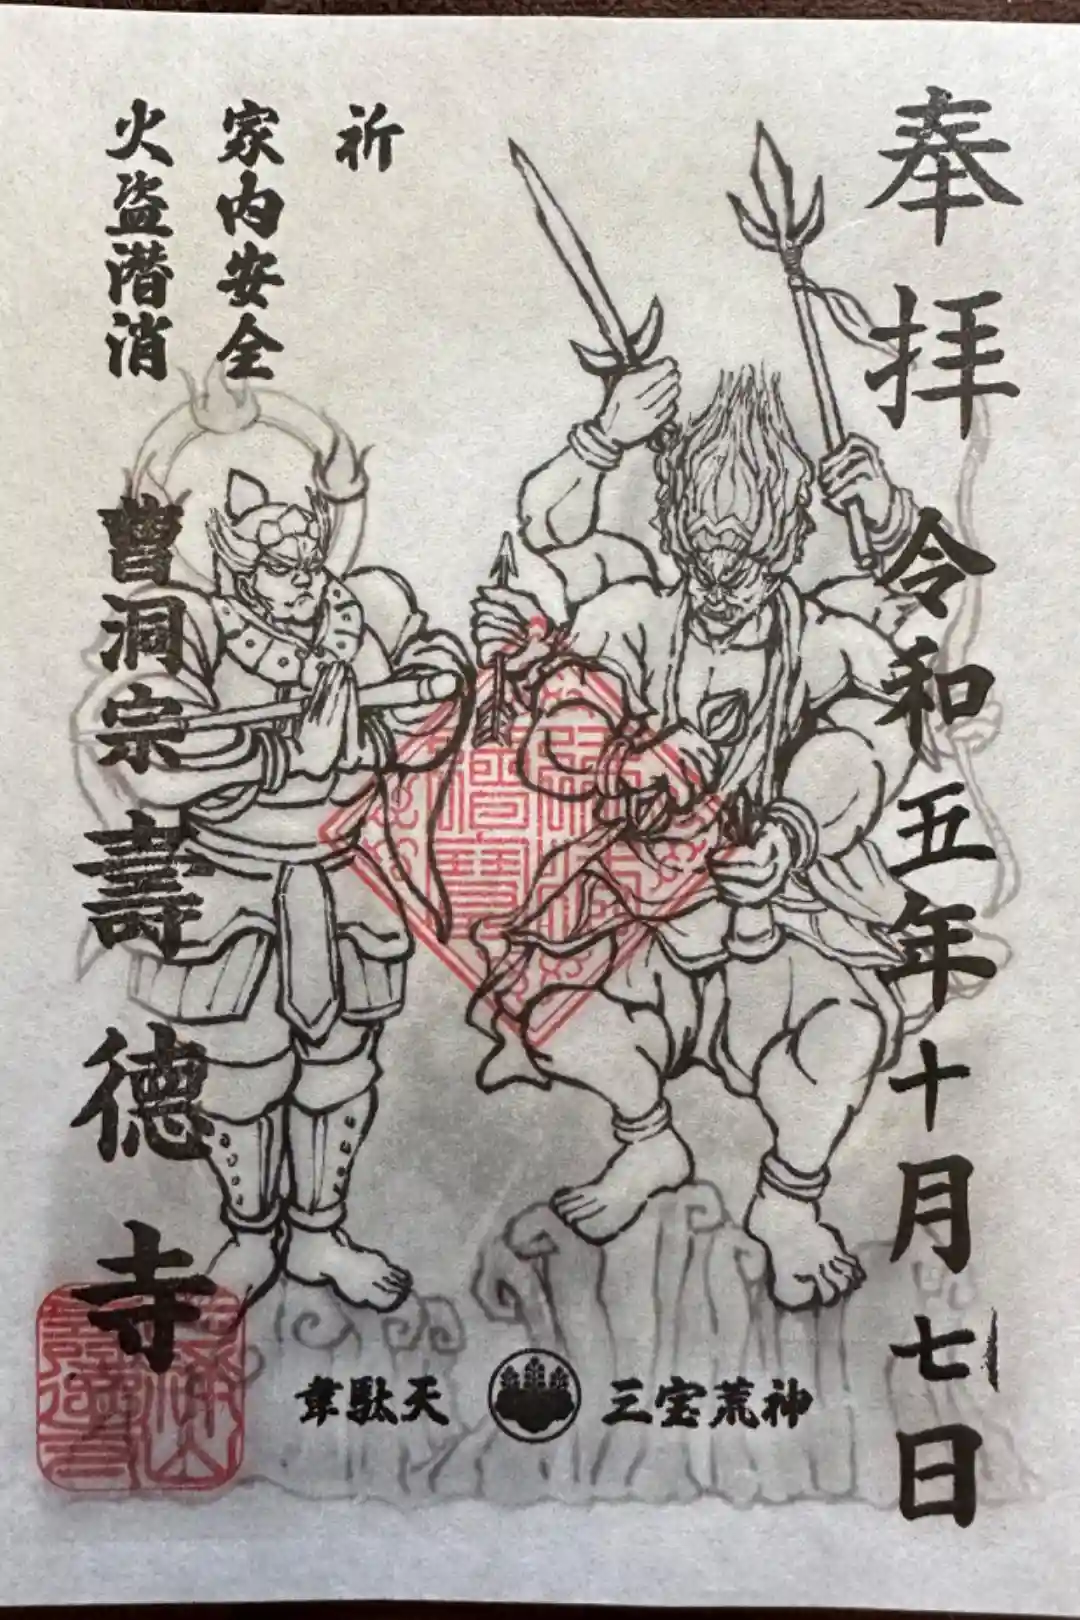 奉拝
令和五年十月七日
祈
家内安全
火盗潜消
曹洞宗 壽德寺
三宝荒神
韋駄天